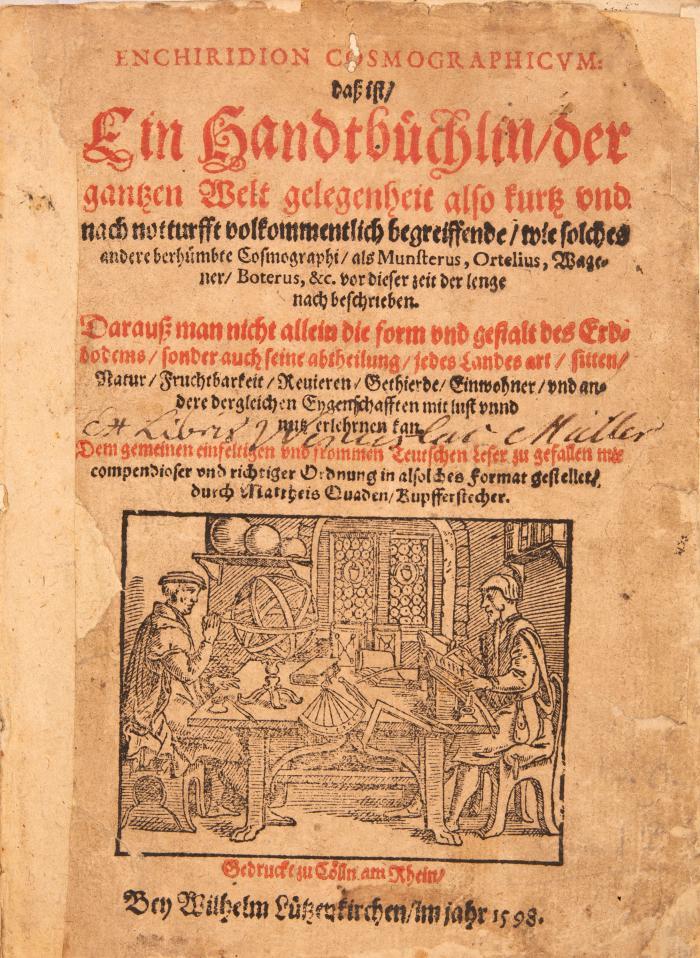 ENCHIRIDION COSMOGRAPHICVM:
daß ist/
Ein Handtbüchlin/der
gantzen Welt gelegenheit also kurtz vnd
nach notturfft volkommentlich begreiffende/wie solches
andere berhümbte Cosmographi/als Munsterus, Ortelius, Wage-
ner/ Boterus, &c. vor dieser zeit der lenge
nach beschrieben.
Darauß man nicht allein die form vnd gestalt des Erd-
bodems/sonder auch seine abtheilung/jedes Landes art/ sitten/
Natur/Fruchtbarkeit/Reuieren/Gethierde/Einwohner/vnd an-
dere dergleichen Eygenschafften mit lust vnnd
nutz erlehrnen kan
Ex Libris Müller
Dem gemeinen einfeltigen vnd frommen Teutschen Leser zu gefallen
compendioser vnd richtiger Ordnung in alsolches Format gestellet/
durch Mattheis Quaden/Kupfferstecher.
Gedruckt zu Cölln am Rhein/
Bey Wilhelm Lützenkirchen/im jahr 1598.